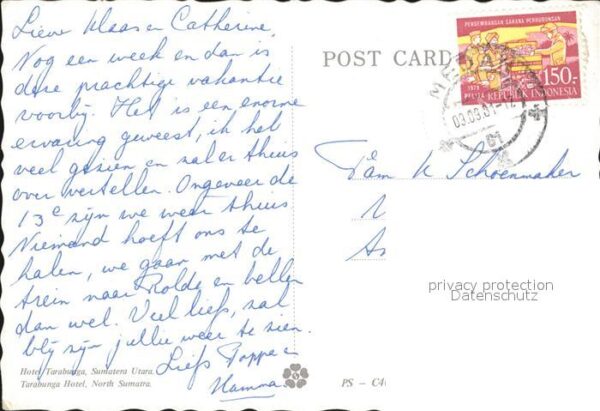 Lieve Klaas en Catherine,
Nog een week en dan is
deze prachtige vakantie
voorbij. Het is een enorme
ervaring geweest, ik heb
veel gezien en zal er thuis
over vertellen. Ongeveer de
13e zijn we weer thuis
Niemand hoeft ons te
halen, we gaan met de
trein naar Rolde en bellen
dan wel. Veel liefs, zal
blij zijn jullie weer te zien.
Liefs Pappa en
Mamma
Hotel Tarabunga, Sumatera Utara.
Tarabunga Hotel, North Sumatra.
POST CARD
PENGEMBANGAN SARANA PERHUBUNGAN
150.-
1979
PELITA
REPUBLIK INDONESIA
ME
03.08.81-12
01
Fam K Schoenmaker
privacy protection
Datenschutz
PS - C4